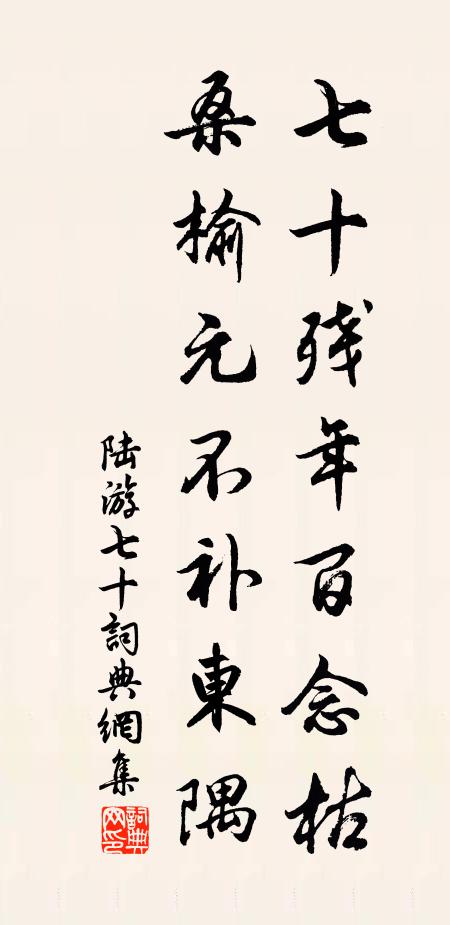 七十残年百念枯
桑榆元不补東隅
陆游七十詞典網集
詞典网印